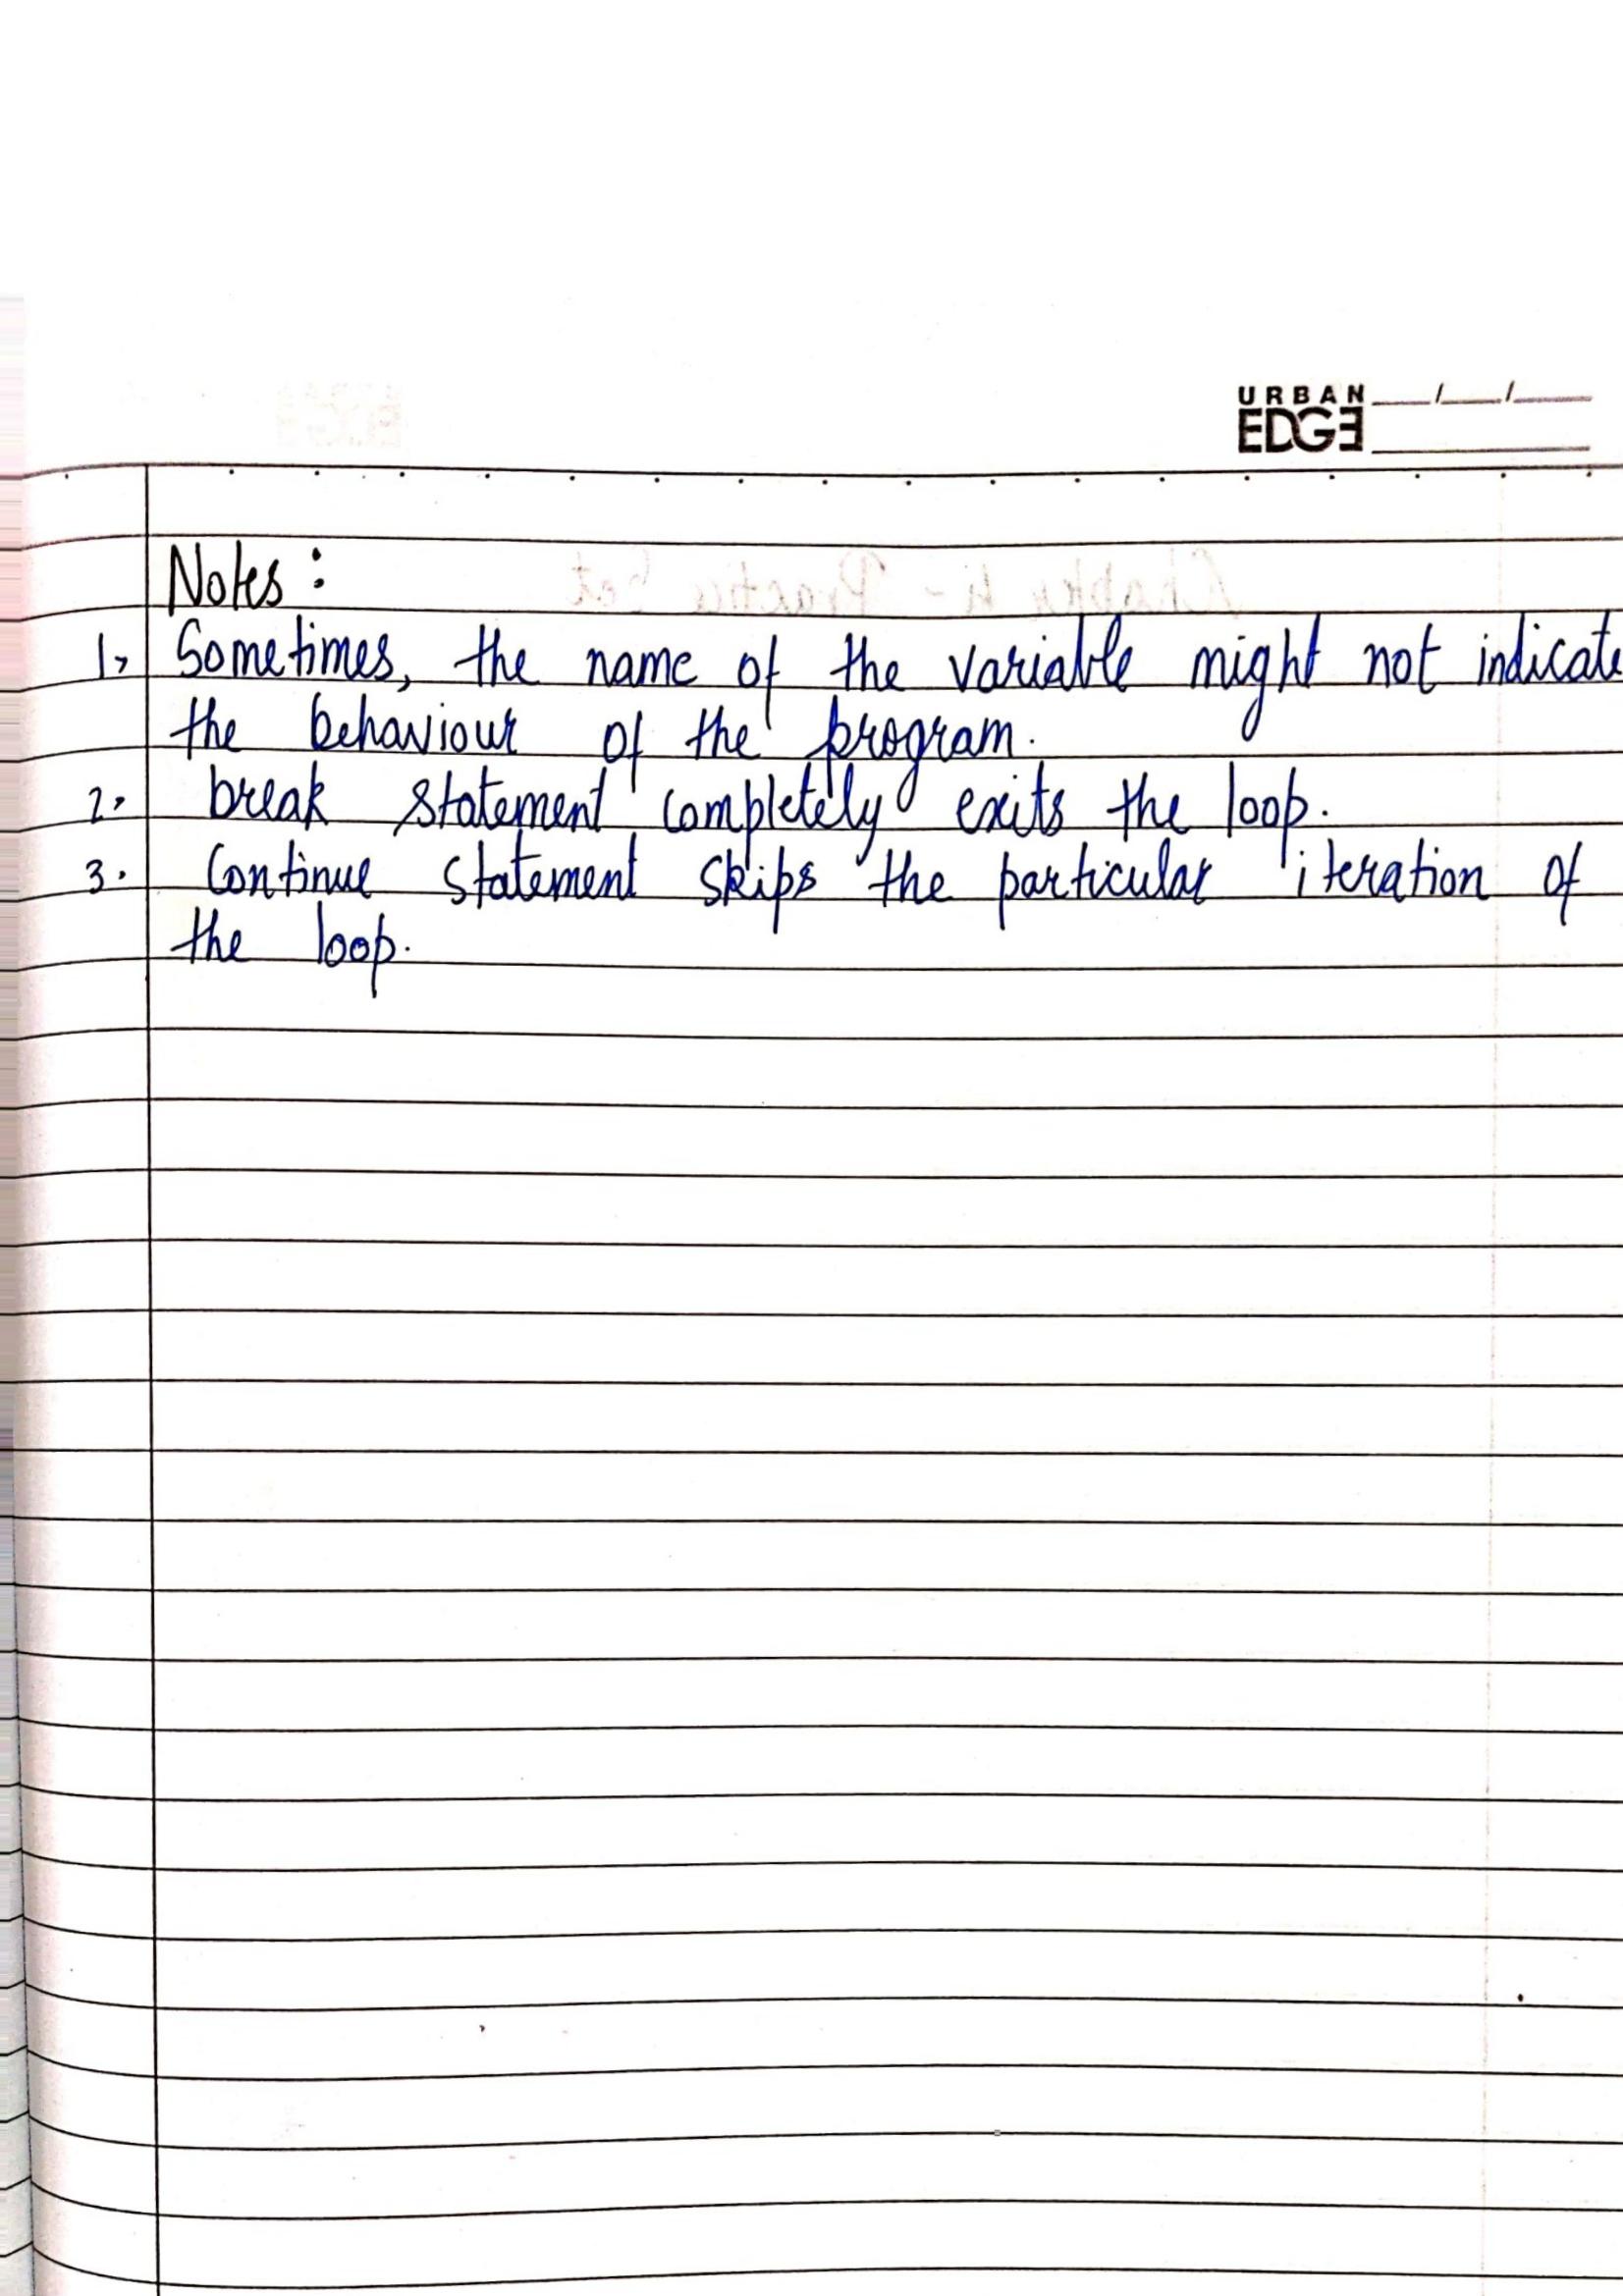 URBAN
EDGE
Notes :
1. Sometimes, the name of the variable might not indicate
the behaviour of the program.
2. break statement completely exits the loop.
3. Continue statement skips the particular iteration of
the loop.